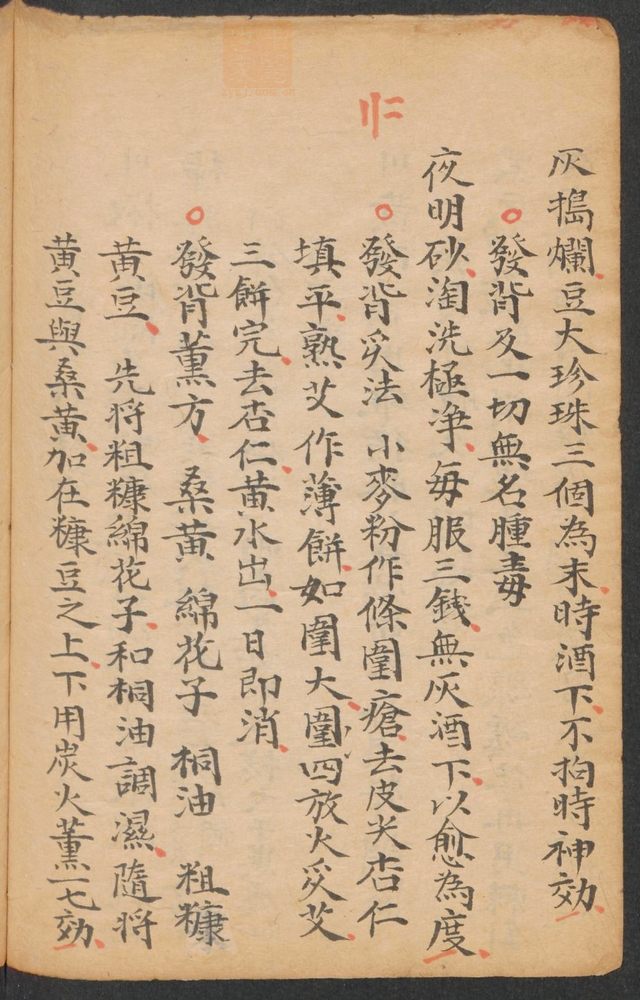 灰搗爛豆大珍珠三個為末時酒下不拘時神効
發背及一切無名腫毒
夜明砂淘洗極净每服三銭無灰酒下以愈為度
發背炙法 小麥粉作條圍瘡去皮尖杏仁
填平熟艾作薄餅如圍大圍四放火炙艾
三餅完去杏仁黄水出一日即消
發背薰方 桑黄 綿花子 桐油 粗糠
黄豆 先将粗糠綿花子和桐油調濕隨将
黄豆與桑黄加在糠豆之上下用炭火薰一七効